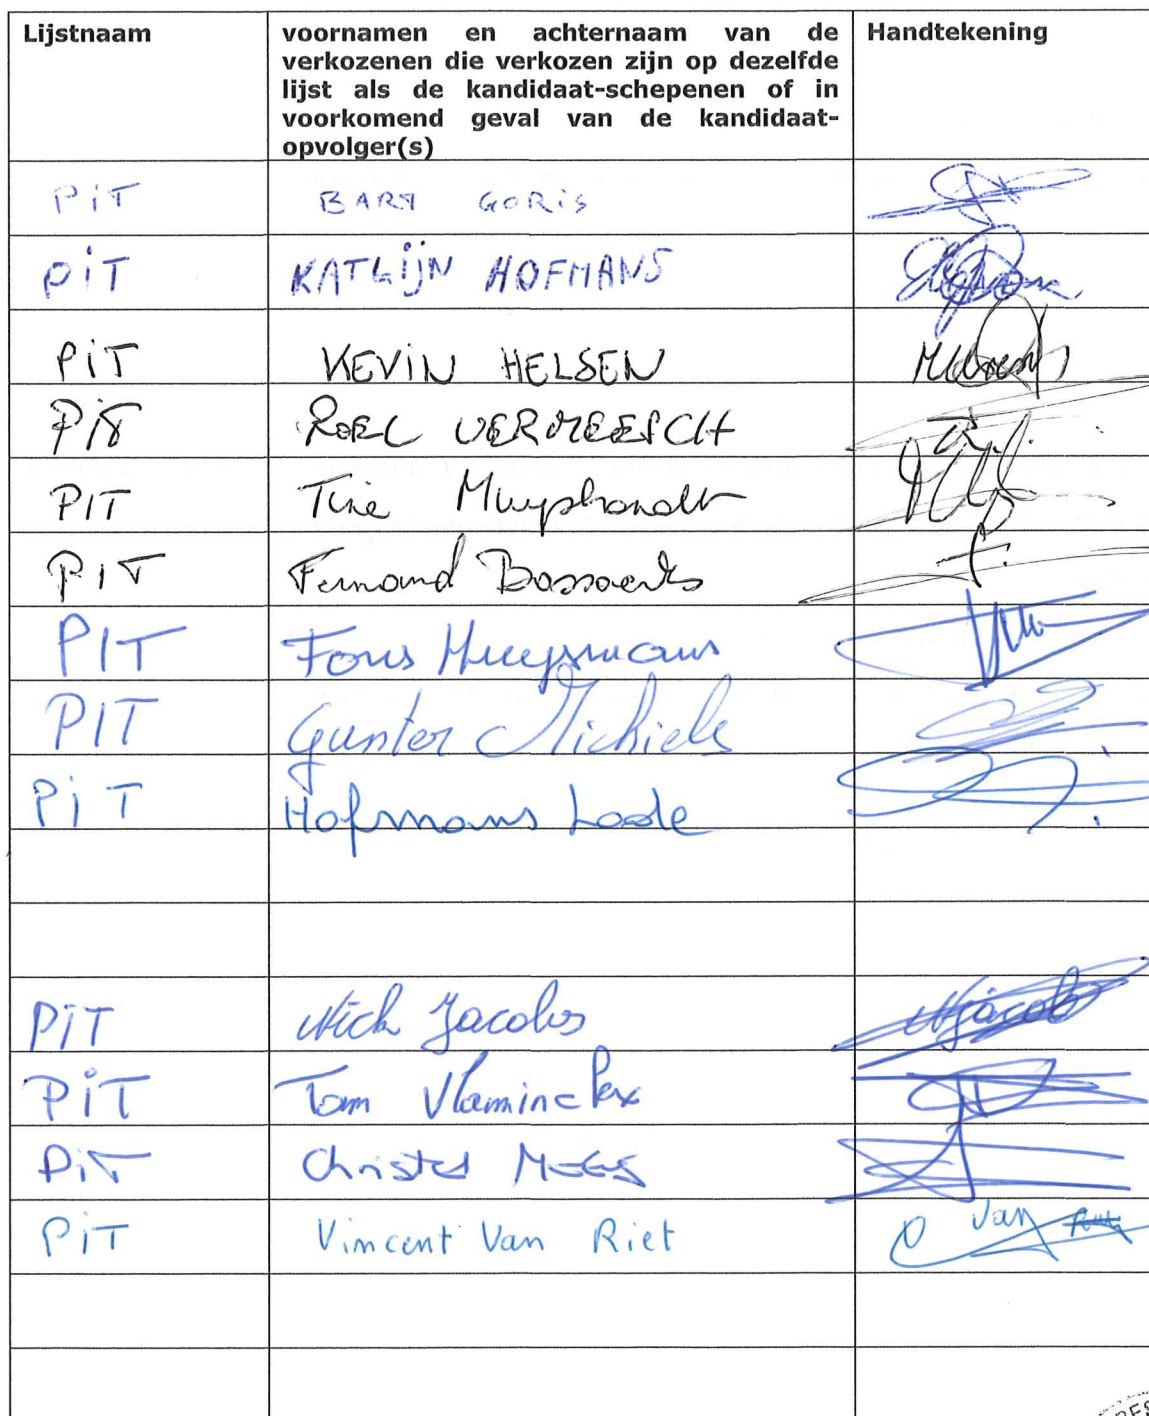 Lijstnaam
voornamen en achternaam van de
verkozenen die verkozen zijn op dezelfde
lijst als de kandidaat-schepenen of in
voorkomend geval van de kandidaat-
opvolger(s)
Handtekening
PiT BART GORiS
PiT KATLiJN HOFMANS
PiT KEViN HELSEN
PiT ROEL VERMEESCH
PIT Tine Muyshondt
PIT Fernand Bossaerts
PIT Fons Huysmans
PIT Gunter Michiels
PiT Hofmans Lode
PiT Nick Jacobs NJacobs
PiT Tom Vlaminckx
PiT Christel Meeus
PiT Vincent Van Riet Van Riet